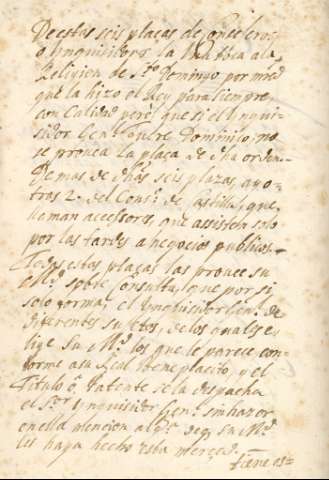 De estas seis plaças de Consejeros
o Ynquisidores la Una toca a la
Religion de Sto. Domingo por mrd
que la hizo el Rey para siempre,
con Calidad pero que si el Ynqui-
sidor Genl. fuere Dominico no
se provea la plaça de dha orden.
Demas de dhas seis plazas, ay o-
tras 2. del Conso. de Castilla, que
llaman accessores, que assisten solo
por las tardes a negocios publicos.
Todas estas plaças las provee su
Md. sobre Consulta, que por si
solo forma el Ynquisidor Genl. de
diferentes sugetos, de los quales e-
lige su Md. los que le parece, con-
forme a su Real Beneplacito, y el
Titulo o Patente se la despacha
el Sor. Ynquisidor Genl. sin hazer
en ella mencion alga. de q. su Md.
les haya hecho esta merced.
tiene es=